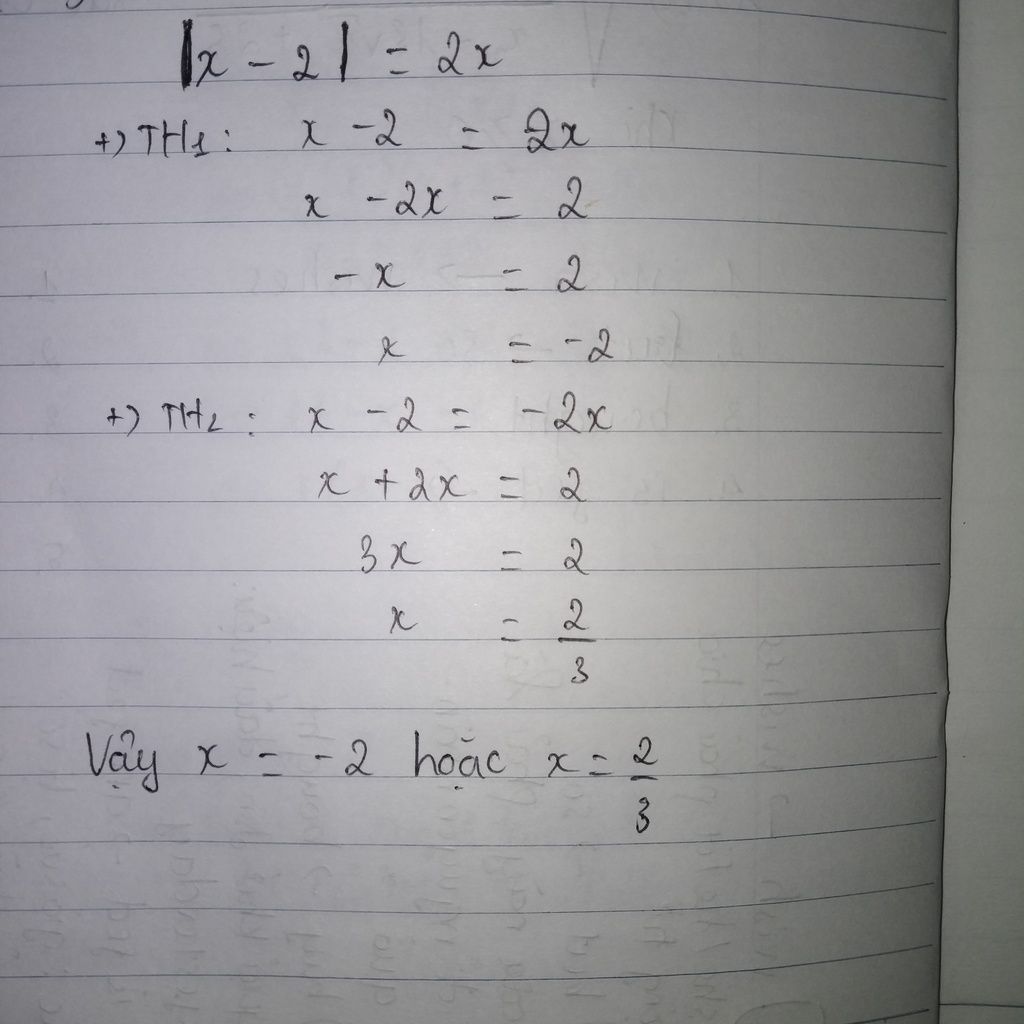 |x - 2| = 2x
+) TH1: x - 2 = 2x
x - 2x = 2
- x = 2
x = -2
+) TH2: x - 2 = -2x
x + 2x = 2
3x = 2
x = 2/3
Vậy x = -2 hoặc x = 2/3